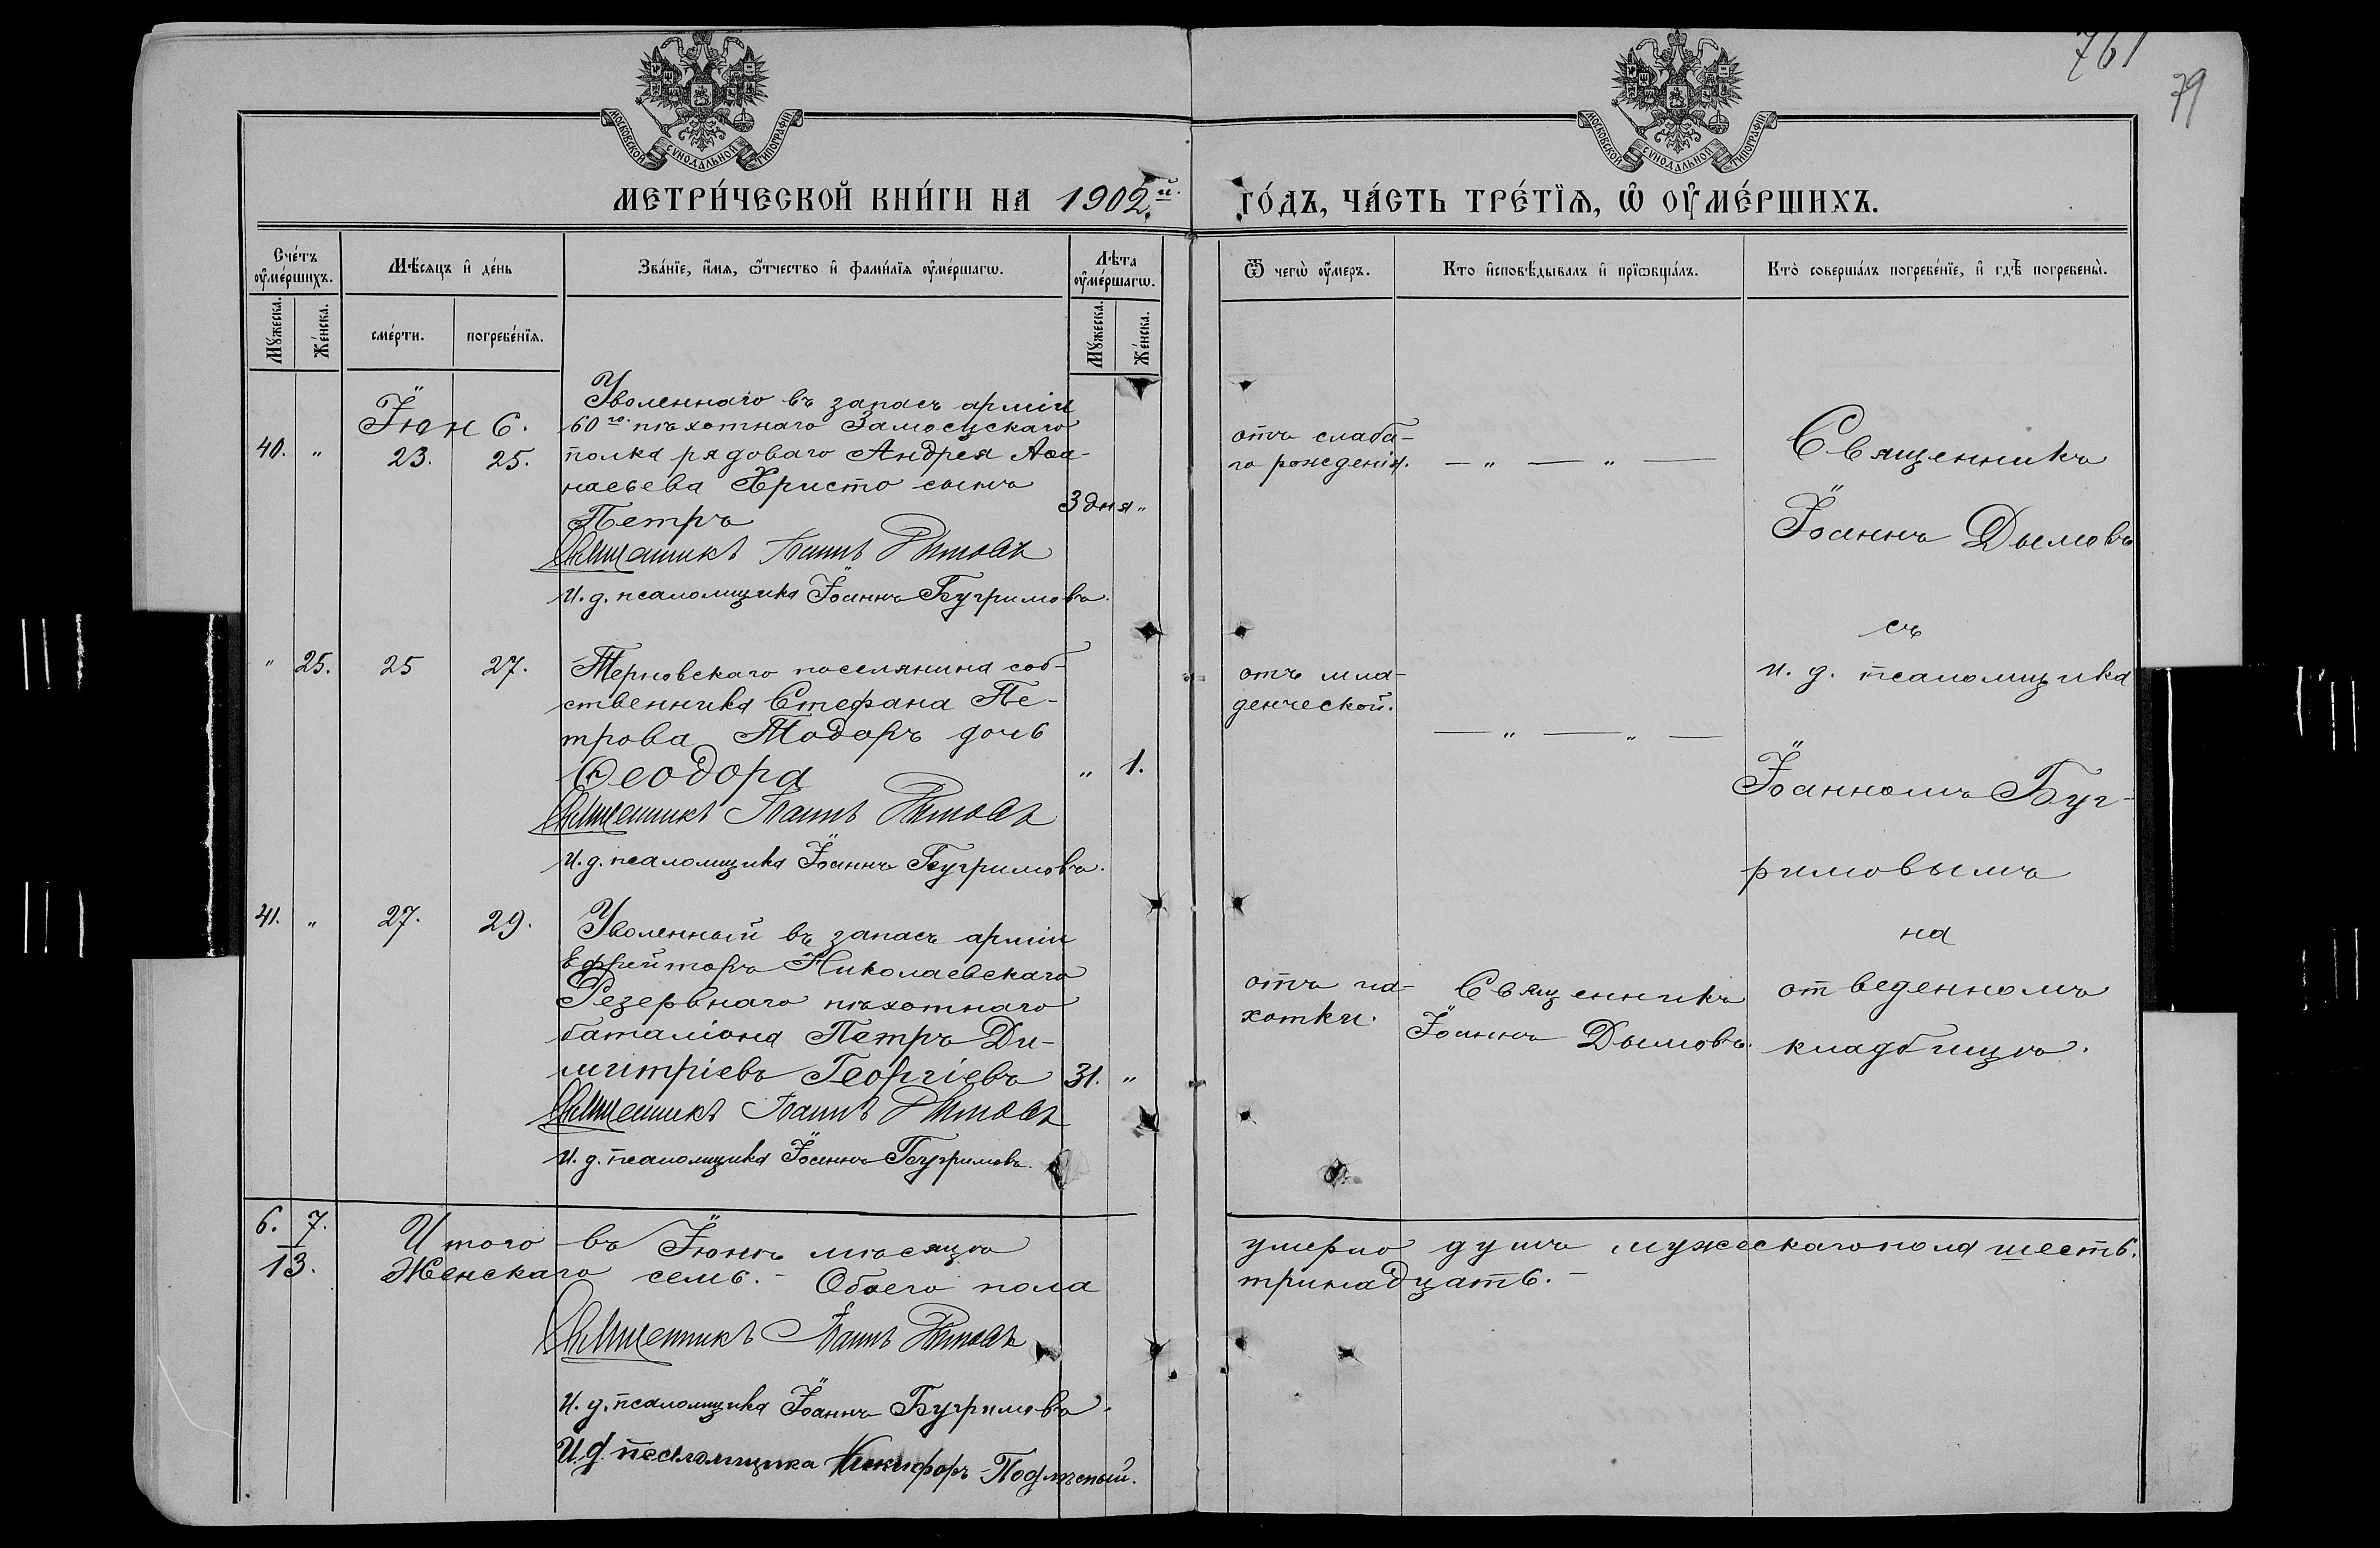 761
79
МОСКОВСКОЙ СѴНОДАЛЬНОЙ ТИПОГРАФІИ
МОСКОВСКОЙ СѴНОДАЛЬНОЙ ТИПОГРАФІИ
МЕТРИ́ЧЕСКОЙ КНИ́ГИ НА 1902.й
ГО́ДЪ, ЧА́СТЬ ТРЕ́ТЇѦ, Ѡ҆ ОУ҆МЕ́РШИХЪ.
Сче́тъ оу҆ме́ршихъ.
Мѣ́сяцъ и҆ де́нь
Зва́нїе, и҆́мя, ѻ҆́тчество и҆ фами́лїя оу҆ме́ршагѡ.
Лѣ́та оу҆ме́ршагѡ.
Ѿ чегѡ̀ оу҆́меръ.
Кто̀ и҆сповѣ́дывалъ и҆ прїѡбща́лъ.
Кто̀ соверша́лъ погребе́нїе, и҆ гдѣ̀ погребены̀.
Мꙋ́жеска.
Же́нска.
сме́рти.
погребе́нїя.
Мꙋ́жеска.
Же́нска.
Іюн 6.
40. " 23. 25.
Уволеннаго въ запасъ арміи
60го пѣхотнаго Замосцскаго
полка рядоваго Андрея Аѳа-
насьева Христо сынъ
Петръ
3 дня "
Священникъ Іоаннъ Дымовъ
И. д. псаломщика Іоаннъ Бугримовъ.
отъ слаба-
го рожденія.
— " — " —
Священникъ
Іоаннъ Дымовъ
съ
и. д. псаломщика
Іоанномъ Буг-
римовымъ
на
отведенномъ
кладбищѣ.
" 25. 25 27.
Терновскаго поселянина соб-
ственника Стефана Пе-
трова Тодоръ дочь
Ѳеодора
" 1.
Священникъ Іоаннъ Дымовъ
И. д. псаломщика Іоаннъ Бугримовъ.
отъ мла-
денческой.
— " — " —
41. " 27. 29.
Уволенный въ запасъ арміи
Ефрейторъ Николаевскаго
Резервнаго пѣхотнаго
баталіона Петръ Ди-
митріевъ Георгіевъ
31. "
Священникъ Іоаннъ Дымовъ
И. д. псаломщика Іоаннъ Бугримовъ.
отъ ча-
хотки.
Священникъ
Іоаннъ Дымовъ.
6. 7.
13.
Итого въ Іюнѣ мѣсяцѣ умерло душъ мужескаго пола шесть.
Женскаго семь.- Обоего пола тринадцать.-
Священникъ Іоаннъ Дымовъ
И. д. псаломщика Іоаннъ Бугримовъ.
И. д. псаломщика Никифоръ Подлѣсный.